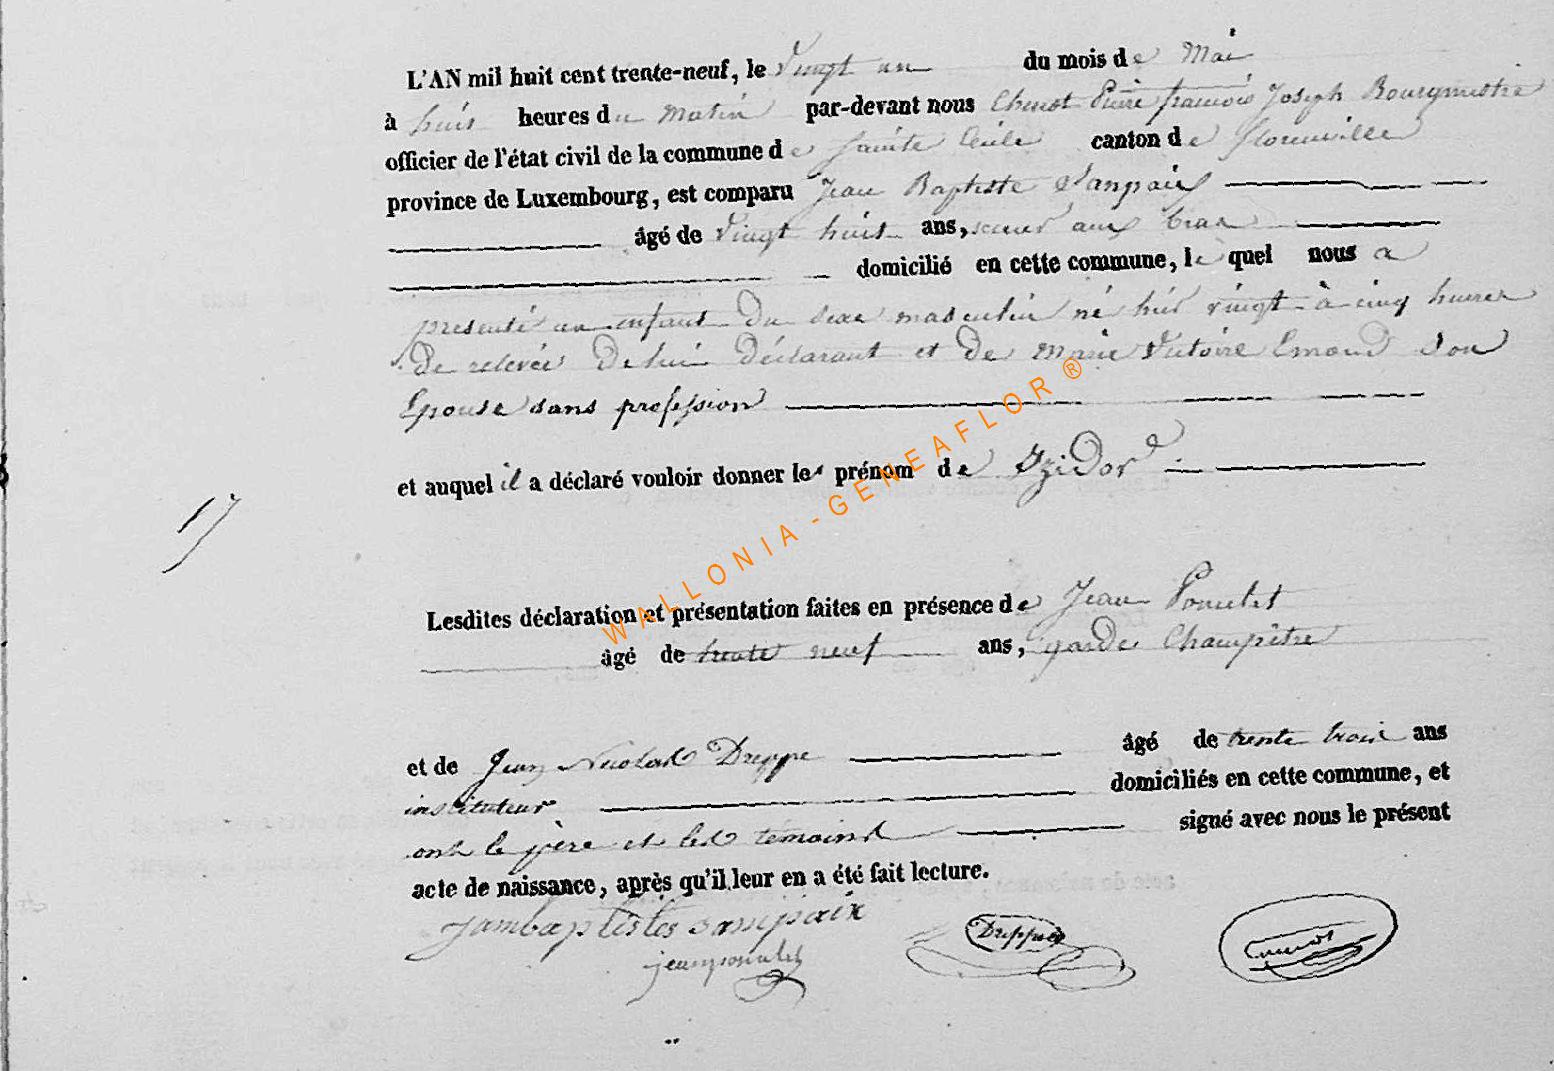 L'AN mil huit cent trente-neuf, le Vingt un du mois de Mai
à huit heures du Matin par-devant nous Chenot Pierre francois Joseph Bourgmestre
officier de l'état civil de la commune de Sainte Cécile canton de florenville
province de Luxembourg, est comparu Jean Baptiste Sanpaix
âgé de Vingt huit ans, scieur aux bras
domicilié en cette commune, le quel nous a
presenté un enfant du sexe masculin né hier vingt à cinq heures
De relevée De lui déclarant et de Marie Victoire Emond Son
Epouse sans profession
et auquel il a déclaré vouloir donner les prénom de Izidore
17
Lesdites déclaration et présentation faites en présence de Jean Ponselet
âgé de trente neuf ans, garde Champêtre
et de Jean Nicolas Dreppe âgé de trente trois ans
instituteur domiciliés en cette commune, et
ont le père et les témoins signé avec nous le présent
acte de naissance, après qu'il leur en a été fait lecture.
Jambaptistes sampaix
Dreppe
WALLONIA - GENEAFLOR ®